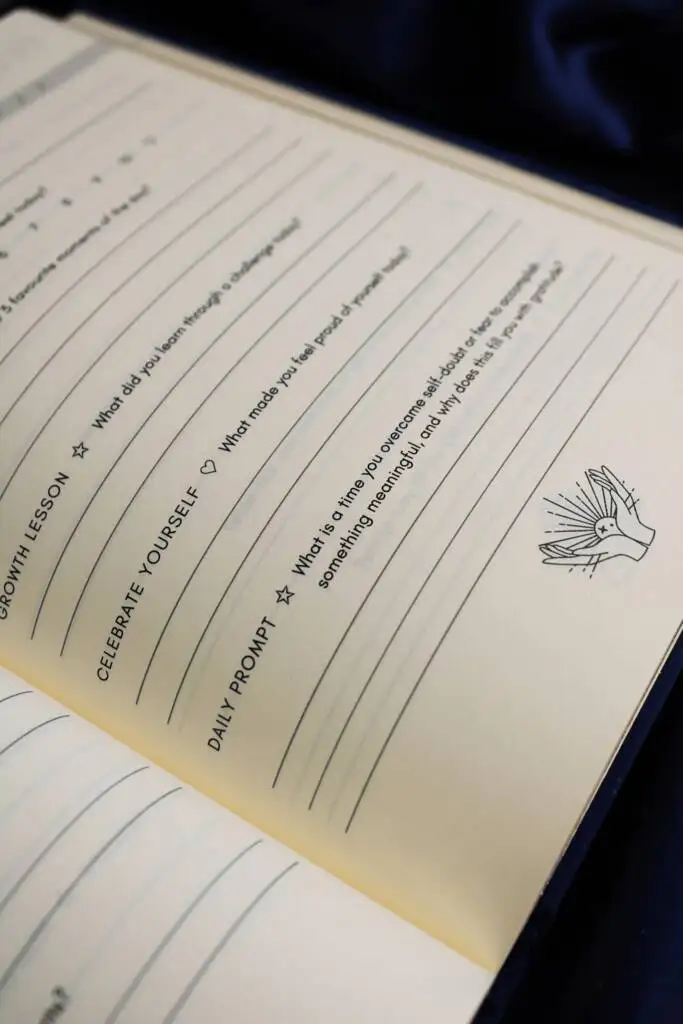 today?
6 7 8 9 10
3 favourite moments of the day?
GROWTH LESSON ☆ What did you learn through a challenge today?
CELEBRATE YOURSELF ♡ What made you feel proud of yourself today?
DAILY PROMPT ☆ What is a time you overcame self-doubt or fear to accomplish
something meaningful, and why does this fill you with gratitude?